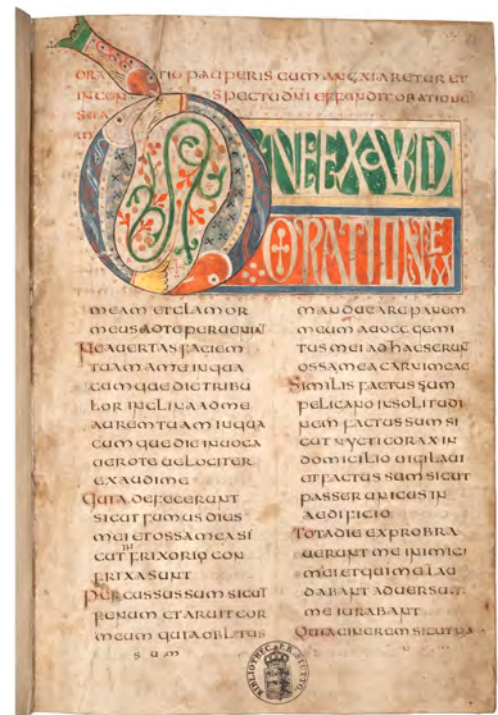 ORATIO PAUPERIS CUM ANXIARETUR ET
IN CONSPECTU DNI EFFUNDIT ORATIONE
SUA
DNE EXAUDI
ORATIONEM
meam et clamor
meus ad te perueniat
Ne auertas faciem
tuam a me in qua
cumque die tribu
lor inclina ad me
aurem tuam in qua
cumque die inuoca
uero te uelociter
exaudi me
Quia defecerunt
sicut fumus dies
mei et ossa mea si
cut in frixorio con
frixa sunt
Percussus sum sicut
fenum et aruit cor
meum quia oblitus
sum
manducare panem
meum a uoce gemi
tus mei adhaeserunt
ossa mea carni meae
Similis factus sum
pelicano insolitudi
nem factus sum si
cut nycticorax in
domicilio uigilaui
et factus sum sicut
passer unicus in
aedificio
Tota die exprobra
uerunt me inimici
mei et qui me lau
dabant aduersum
me iurabant
Quia cinerem sicut pa